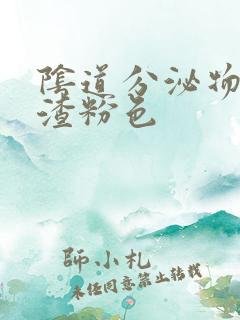 陰道分泌物
渣粉色
師小札
未經同意禁止轉載